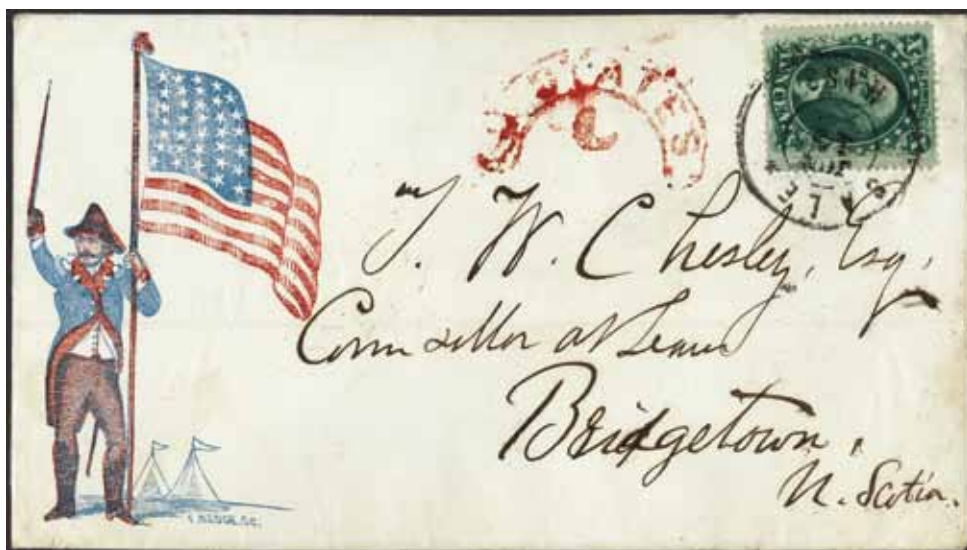 U. STATES
6
T. W. Chesley, Esq.
Counsellor at Law
Bridgetown,
N. Scotia.